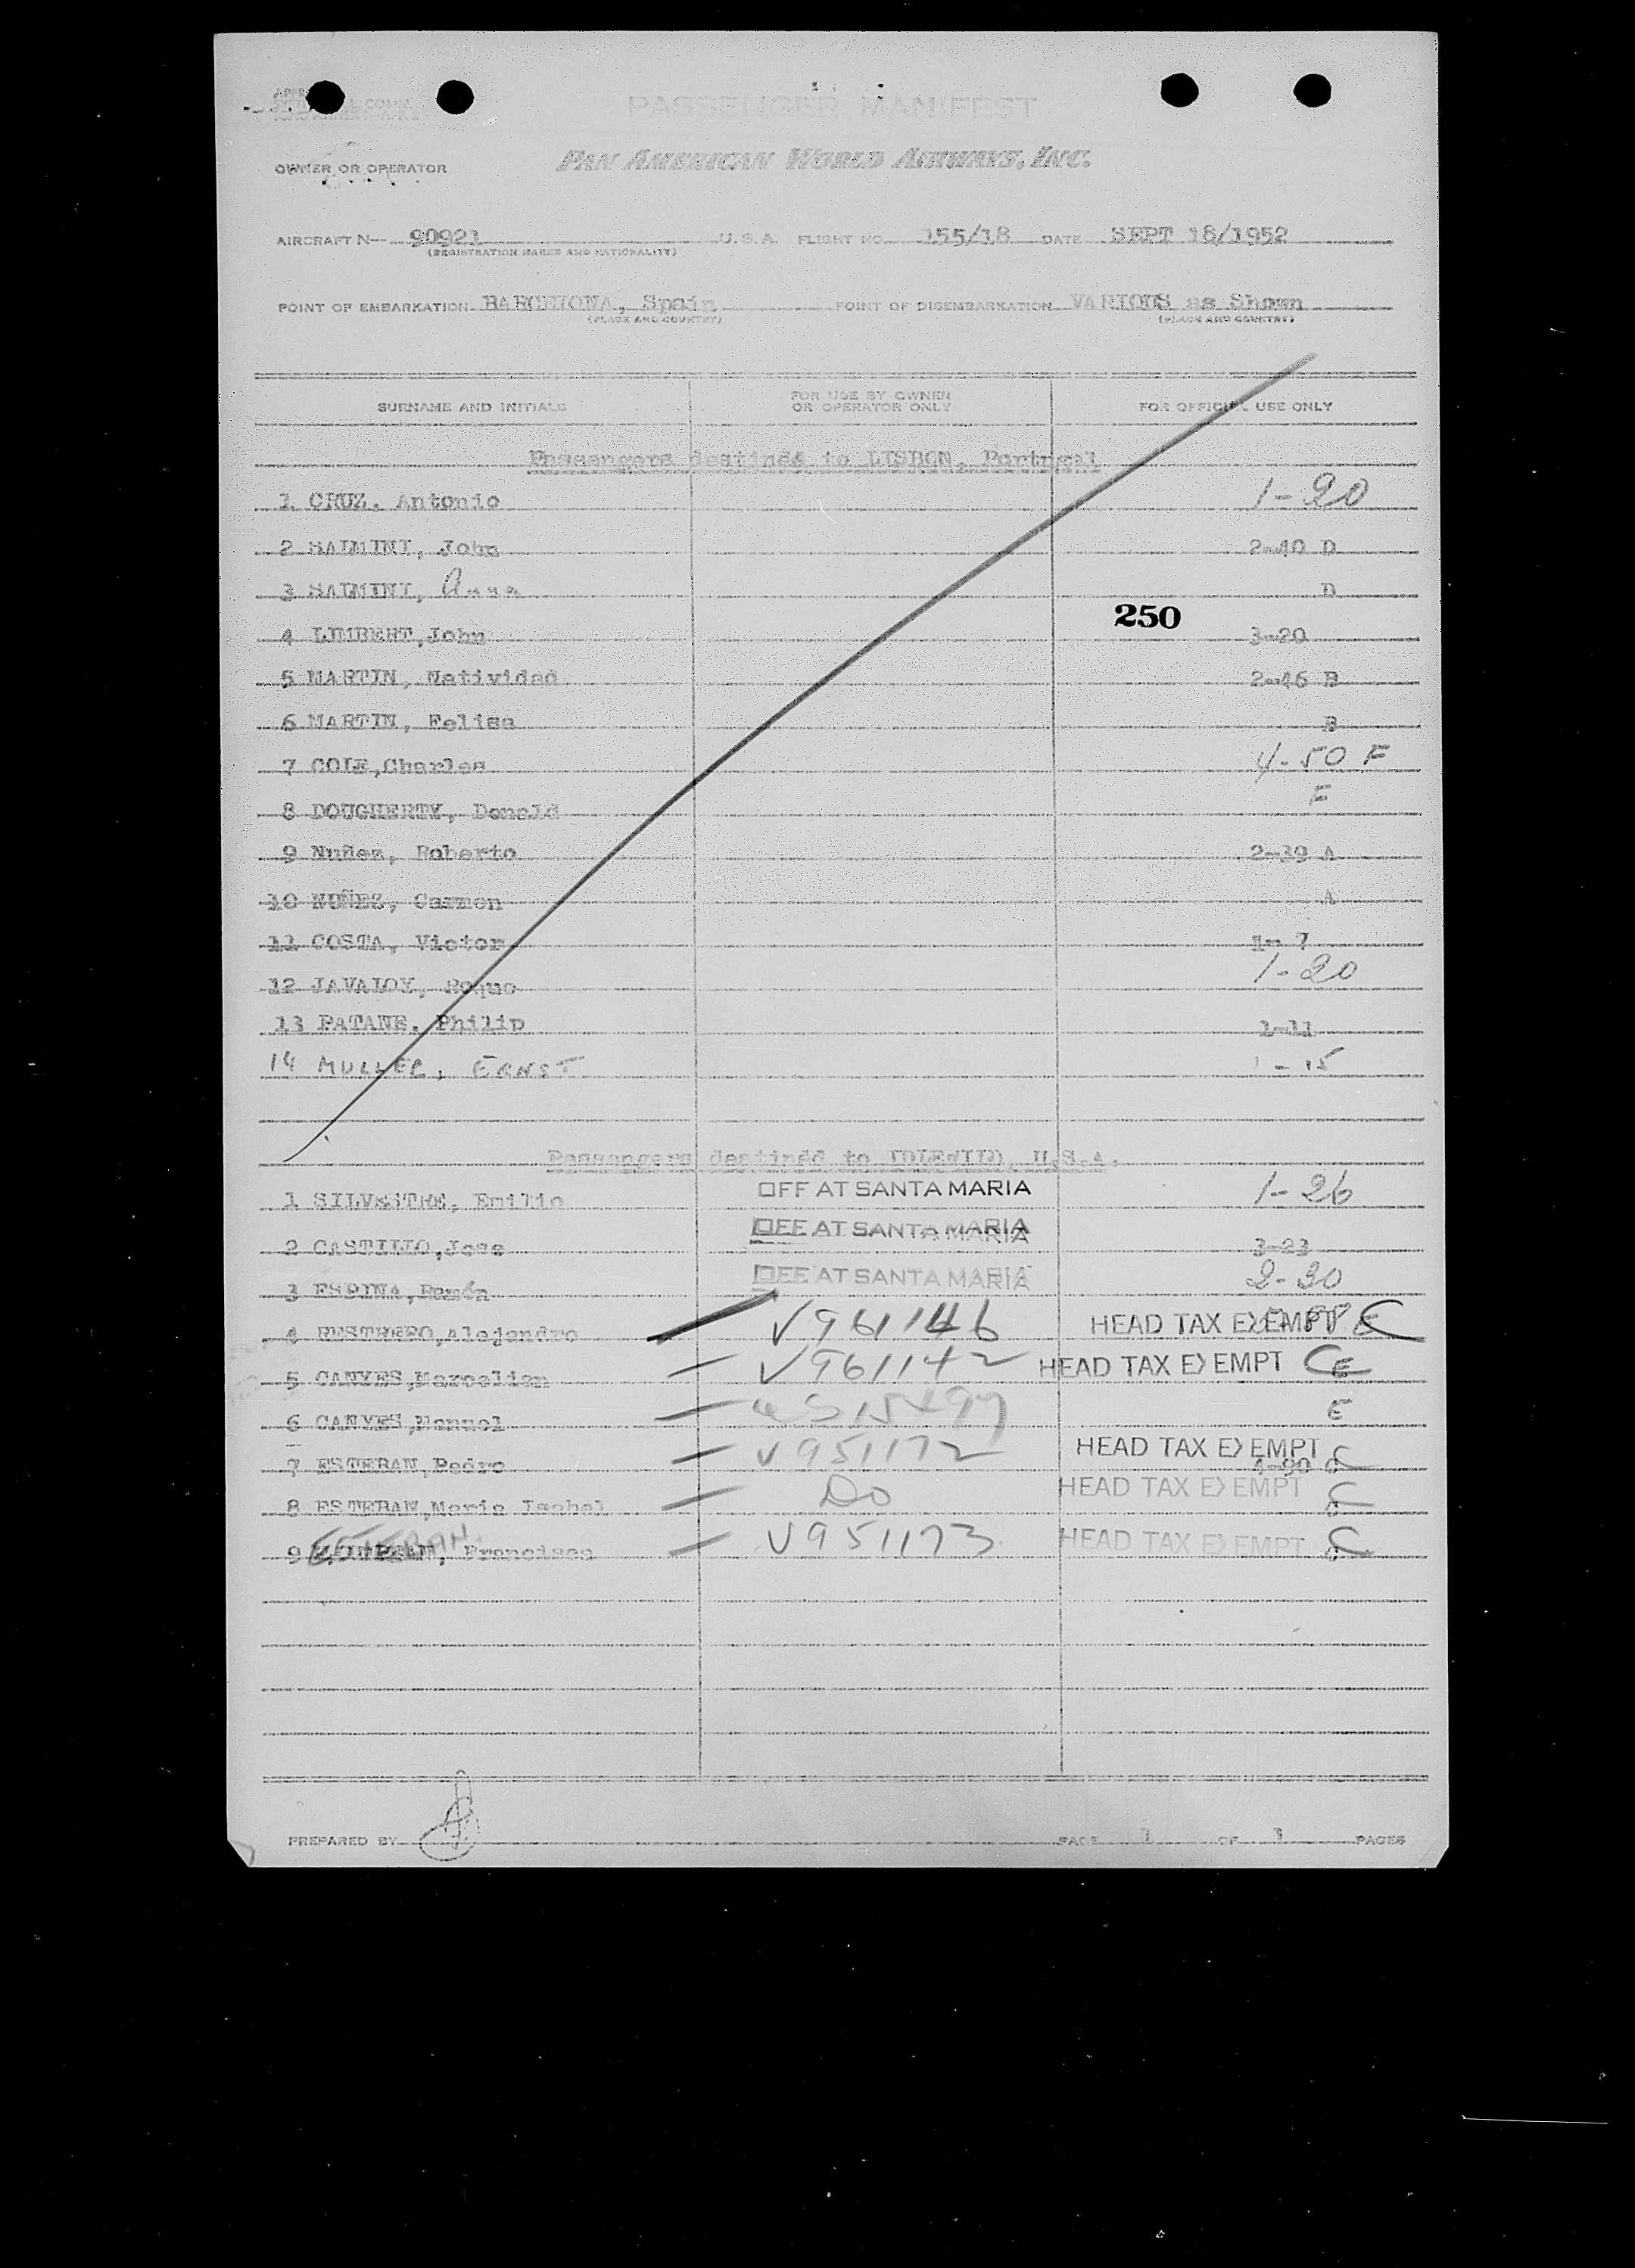 PASSENGER MANIFEST
OWNER OR OPERATOR PAN AMERICAN WORLD AIRWAYS, INC.
AIRCRAFT N- 90921 U.S.A. FLIGHT NO. 155/18 DATE SEPT 18/1952
(REGISTRATION MARKS AND NATIONALITY)
POINT OF EMBARKATION BARCELONA, Spain POINT OF DISEMBARKATION VARIOUS as Shown
(PLACE AND COUNTRY) (PLACE AND COUNTRY)
SURNAME AND INITIALS FOR USE BY OWNER OR OPERATOR ONLY FOR OFFICIAL USE ONLY
Passengers destined to LISBON, Portugal
1 CRUZ, Antonio 1-20
2 SALMINI, John 2-40 D
3 SALMINI, Anna D
250
4 LIMBERT, John 3-20
5 MARTIN, Natividad 2-46 B
6 MARTIN, Felisa B
7 COLE, Charles 4-50 F
8 DOUGHERTY, Donald F
9 Nuñez, Roberto 2-39 A
10 NUÑEZ, Carmen A
11 COSTA, Victor 1- 7
12 JAVALOY, Roque 1-20
13 PATANE, Philip 1-11
14 MULLER, ERNST 1-15
Passengers destined to IDLEWILD, U.S.A.
1 SILVESTRE, Emilio OFF AT SANTA MARIA 1-26
2 CASTILLO, Jose OFF AT SANTA MARIA 3-23
3 ESPINA, Ramón OFF AT SANTA MARIA 2-30
4 RESTREPO, Alejandro V961146 HEAD TAX EXEMPT C
5 CANYES, Marcelian V961142 HEAD TAX EXEMPT C E
6 CANYES, Manuel E
7 ESTEBAN, Pedro V951172 HEAD TAX EXEMPT C
8 ESTEBAN, Maria Isabel Do HEAD TAX EXEMPT C
9 ESTEBAN, Francisco V951173 HEAD TAX EXEMPT C
PREPARED BY PAGE 1 OF 1 PAGES